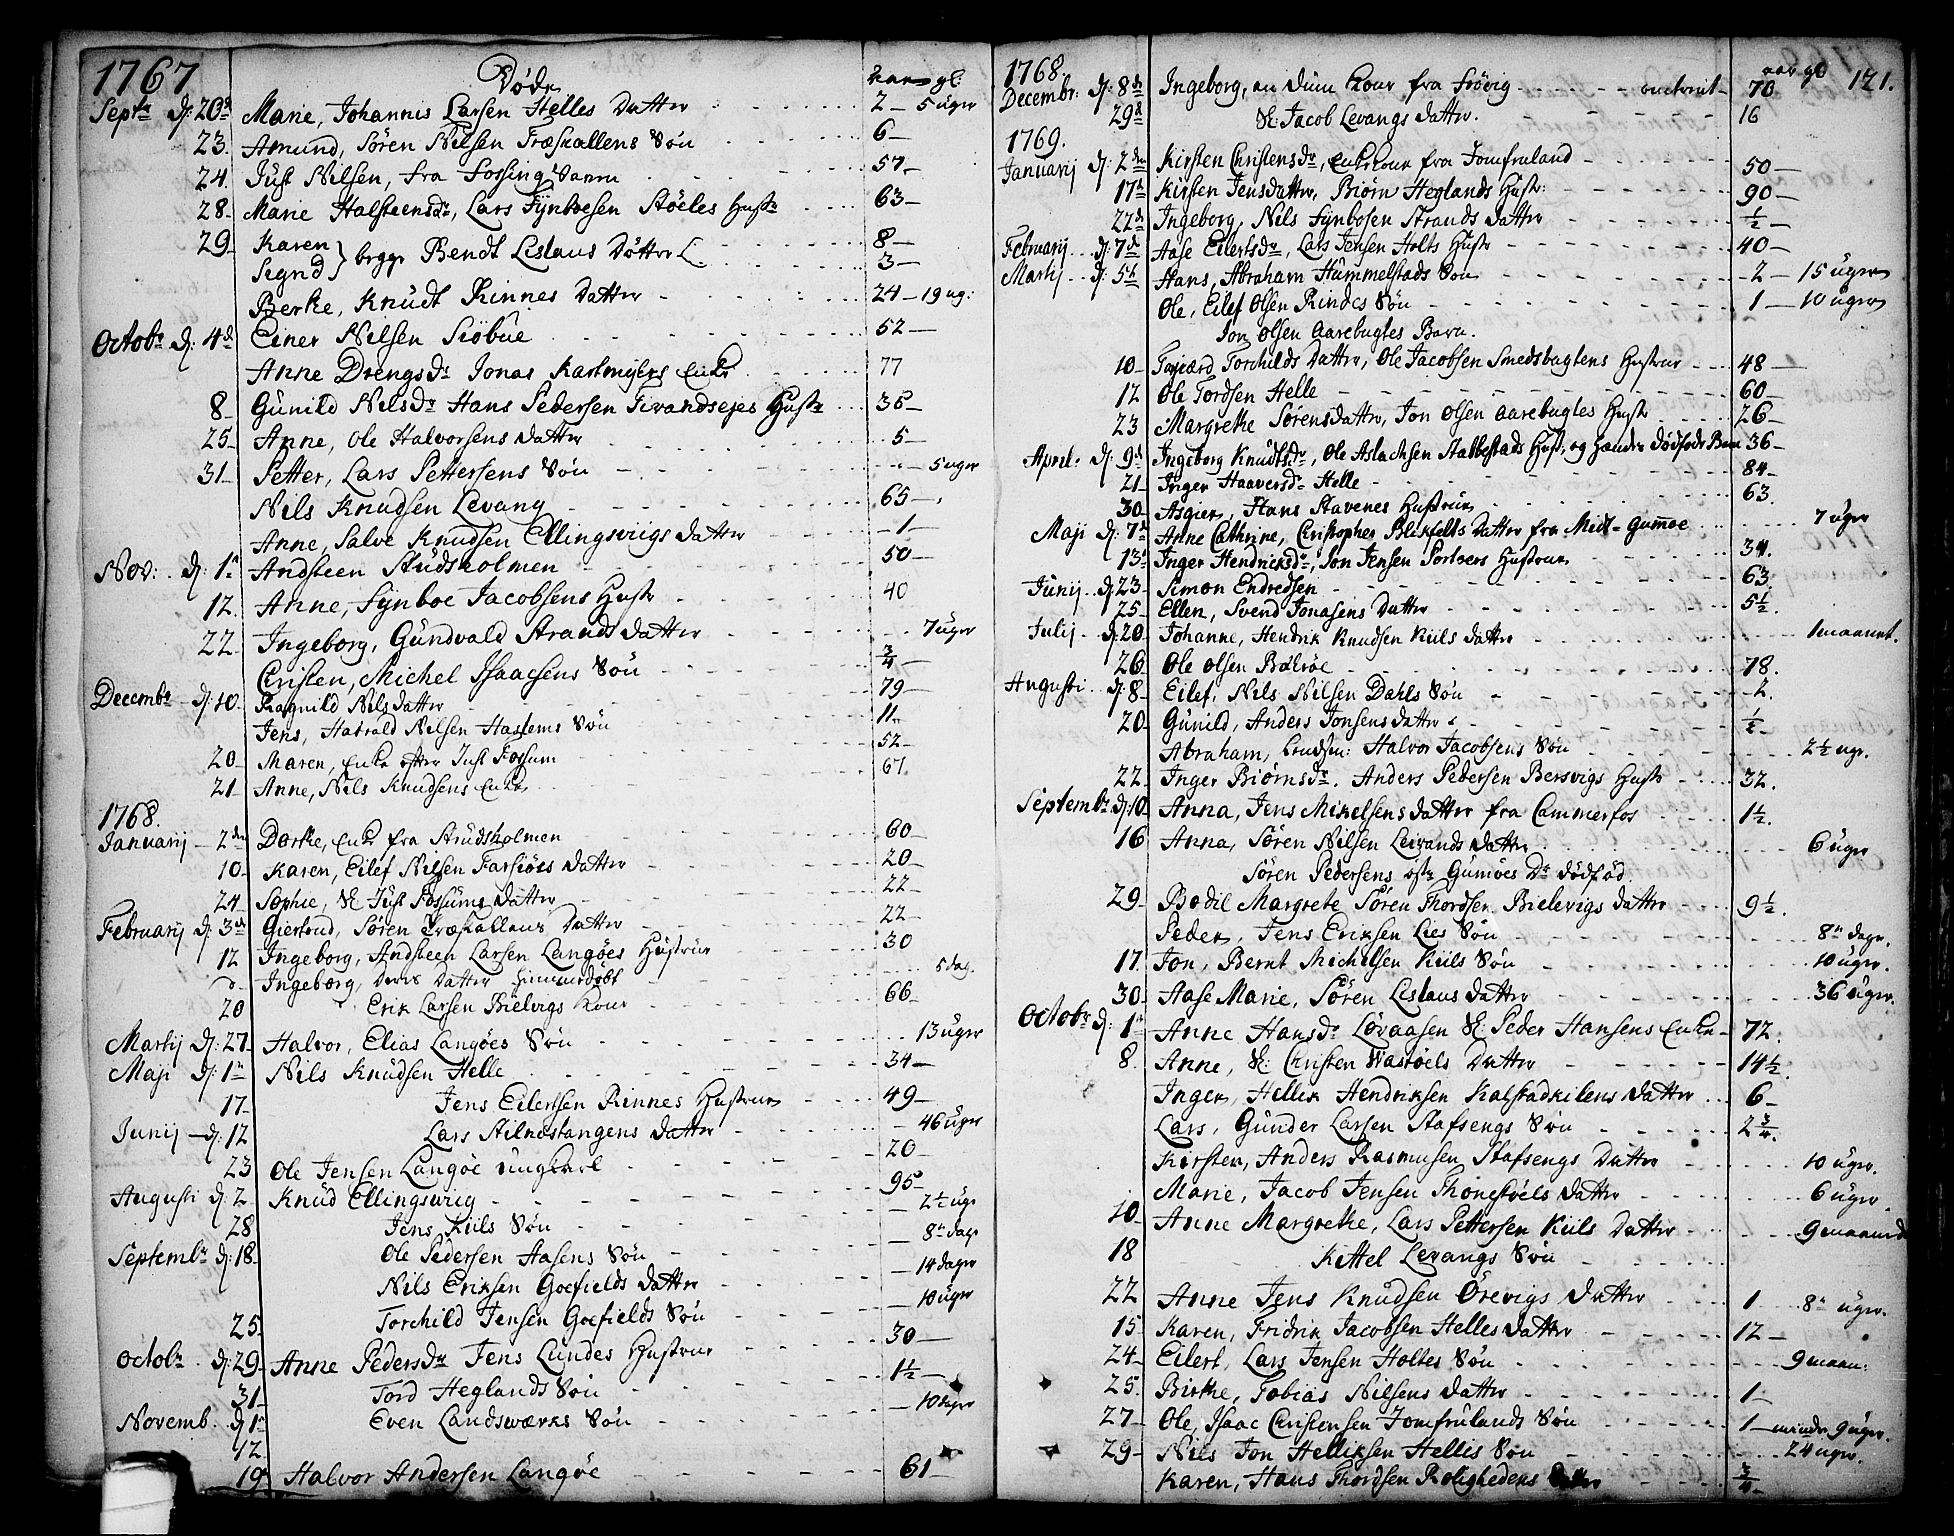 1767 Døde aar gl:
Septr d: 20d Marie, Johannis Larsen Helles Datter 2 — 5 uger
23. Amund, Sören Nilsen Træskallens Sön 6 —
24. Just Nilsen, fra Fossing 57. —
28 — Marie Halsteensdr, Lars Synboesen Stöeles Hustr 63 —
29 — Karen 8 —
Signd } begge Bendt Leslaus Döttre 3 —
Berte, Knudt Rinnes Datter 24 — 19 ug:
Octobr d: 4d Einer Nilsen Siöbue 52 —
Anne Drengsdr Jonas Kartmyers Enke 77
8 — Gunild Nilsdr Hans Pedersen Tivandsejes Hustr 38 —
25 — Anne, Ole Halvorsens Datter 5 —
31 — Petter, Lars Pettersens Sön — 5 uger
Nils Knudsen Levang 65 —
Anne, Salve Knudsen Ellingsviigs Datter — 1 —
Nov: d: 1n Andsteen Studsholmen 50 —
12. Anne, Synboe Jacobsens Hustr 40
22 — Ingeborg, Gundvald Strands Datter 7 uger
Cristen, Michel Isaacsens Sön 3/4 —
Decembr d: 10 — Ragnild Nils Datter 79 —
Jens, Harald Nilsen Hassems Sön 11 —
20 — Maren, Enke efter Just Fossum 52 —
21 — Anne, Nils Knudsens Enke 67.
1768.
Januarij — 2den Dorthe, Enke fra Studsholmen 60 —
10 — Karen, Eilef Nilsen Farsiöes Datter 20 —
24 Sophie, Sl: Just Fossums Datter 22 —
Februarij d: 3de Giertrud, Sören Træskallens Datter 22 —
12 Ingeborg, Andsteen Larsen Langöes Hustrue 30
Ingeborg, deres Datter hiemmedöbt 5 dag.
20 Erik Larsen Bielvigs Kone 66
Martij d: 27 — Halvor, Elias Langöes Sön 13 uger
Maji d: 1n Nils Knudsen Helle 34 —
17 — Jens Eilertsen Rinnes Hustrue 49 —
Junij — d: 12 Lars Stilnestangens Datter — 46 uger
23 Ole Jensen Langöe ungkarl 20 —
Augusti d: 2 — Knud Ellingsvig 95 —
28 Jens Kiils Sön — 2 1/2 uge
Septembr d: 18 — Ole Pedersen Aasens Sön — 8n dage
Nils Eriksen Goefields Datter — 14 dager
25 — Torchild Jensen Goefields Sön — 10 uger
Octobr d: 29 — Anne Pedersdr Jens Lundes Hustrue 30 —
31 — Tord Heglands Sön 1 1/2 —
Novemb. d 1n Even Landsværks Sön — 10 uger
12
19 Halvor Andersen Langöe 61 —
1768. aar gl 121.
Decembr: d: 8de Ingeborg, en Kone fra omtrent — 70
29d Sl: Jacob Levangs Datter. 16
1769.
Januarij d: 2den Kirsten Christensdr, Enkekone fra Jomfruland 50 —
17d Kirsten Jensdatter, Biörn Heglands Hustr: 90 —
22d Ingeborg, Nils Synbosen Strands Datter 1/2 —
Februarij d: 7de Aase Eilertsdr, Lars Jensen Holts Hustr 40 —
Martij d: 5te Hans, Abraham Hummelstads Sön 2 — 15 uger
Ole, Eilef Olsen Rindes Sön 1 — 10 uger
Jon Olsen Aarebugtes Barn.
10 — Torchilds Datter, Ole Jacobsen Smedsbugtens Hustrue 48 —
12 Ole Tordsen Helle 60 —
23 Margrethe Sörensdatter, Jon Olsen Aarebugtes Hustr 26 —
April: d: 9d Ingeborg Knudtsdr, Ole Aslachsen Stabbestads Hustr, og hendes dödfödte Barn 36 —
21 — Inger Haaversdr Helle 84 —
30 — Asgier, Hans Stavenes Hustrue 63.
Maji d: 7d Anne Cathrine, Christopher Blixfelts Datter fra Midt-Gumöe 7 uger
13d Inger Hendrichsdr, Jon Jensen Portvers Hustrue 34.
Junij d: 23 — Simon Endresen 63.
25 — Ellen, Svend Jonasens Datter 5 1/2.
Julij d: 20. Johanne, Hendrik Knudsen Kiils Datter 1 maanet.
26 Ole Olsen 78.
Augusti d: 8 — Eilef, Nils Nilsen Dahls Sön
20 — Gunild, Anders Jonsens Datter 1/2 —
Abraham, Halvor Jacobsens Sön 2 1/2 ugr.
22 — Inger Biörnsdr. Anders Pedersen Bersvigs Hustr 32.
Septembr d: 10 — Anna, Jens Mikelsens Datter fra Cammerfos 1 1/2.
16 Anna, Sören Nilsen Leivands Datter 6 uger
Sören Pedersens östr Gumöes Dr dödföd.
29 — Bodil Margrete Sören Thordsen Bielevigs Datter 9 1/2.
Peder, Jens Eriksen Lies Sön 8n dage.
17. Jon, Bernt Michelsen Kiils Sön 10 uger.
30 — Aase Marie, Sören Leslaus Datter 36 uger.
Octobr d: 1n Anne Hansdr Lövaasen Sl: Peder Hansens Enke — 72.
8. Anne, Sl: Christen Wastöels Datter 14 1/2.
Inger, Hellik Hendriksen Kalstadkilens Datter 6 —
Lars, Gunder Larsen Stafsengs Sön 2 3/4.
Kirsten, Anders Rasmusen Stafsengs Datter 10 uger.
Marie, Jacob Jensen Thonestöels Datter 6 uger
10 — Anne Margrethe, Lars Pettersen Kiils Datter 9 maaned
18 Kittel Levangs Sön
22 Anne Jens Knudsen Örevigs Datter 1 8n uger.
15 Karen, Fridrik Jacobsen Helles Datter 12 —
24 — Eilert, Lars Jensen Holtes Sön 9 maan:
25. Birthe, Tobias Nilsens Datter 1 —
27 — Ole, Isaac Christensen Jomfrulands Sön 1 — mindre 9 uger.
29 — Nils Jon Helliksen Hellis Sön 24 uger.
Karen, Hans Thordsen Rolighedens Datter 3/4 —